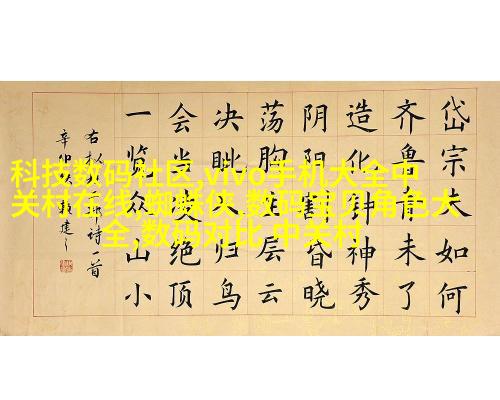 科技数码社区,vivo手机大全中
关村在线,蜘蛛侠,数码宝贝角色大
全,数码对比,中关村
岱宗夫如何
齐鲁青未了
造化钟神秀
阴阳割昏晓
荡胸生层云
决眦入归鸟
会当凌绝顶
一览众山小
右 诗一首
辛卯 建